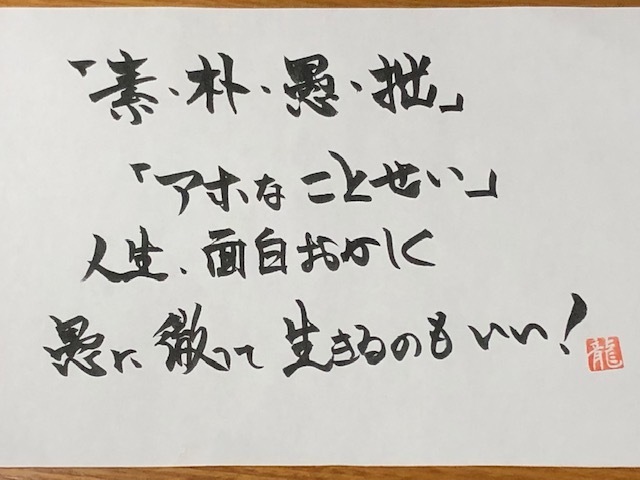 「素、朴、愚、拙」
「アホなことせい」
人生、面白おかしく
愚に徹って生きるのもいい!
龍